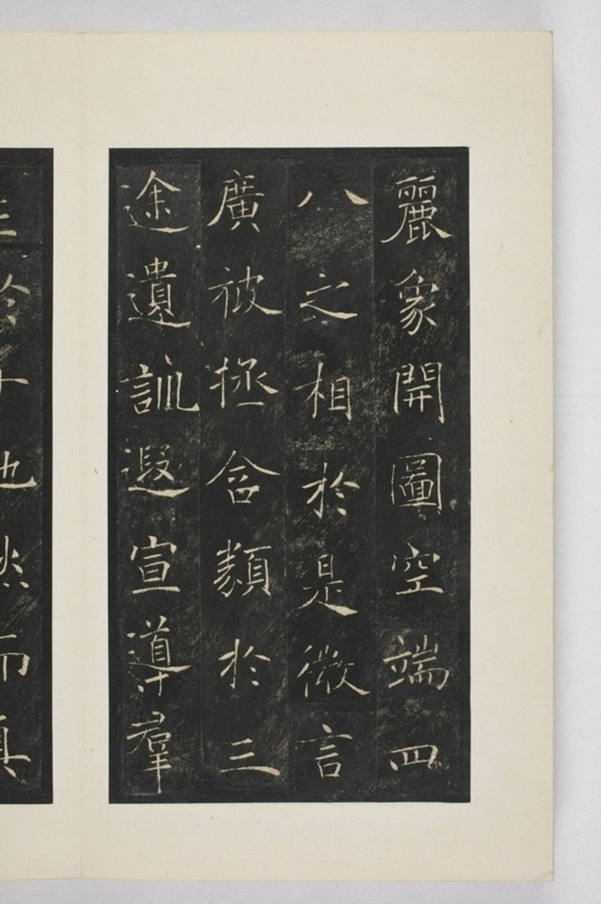 麗象開圖空端四
八之相於是微言
廣被拯含類於三
途遺訓遐宣導羣
生於十地然而真